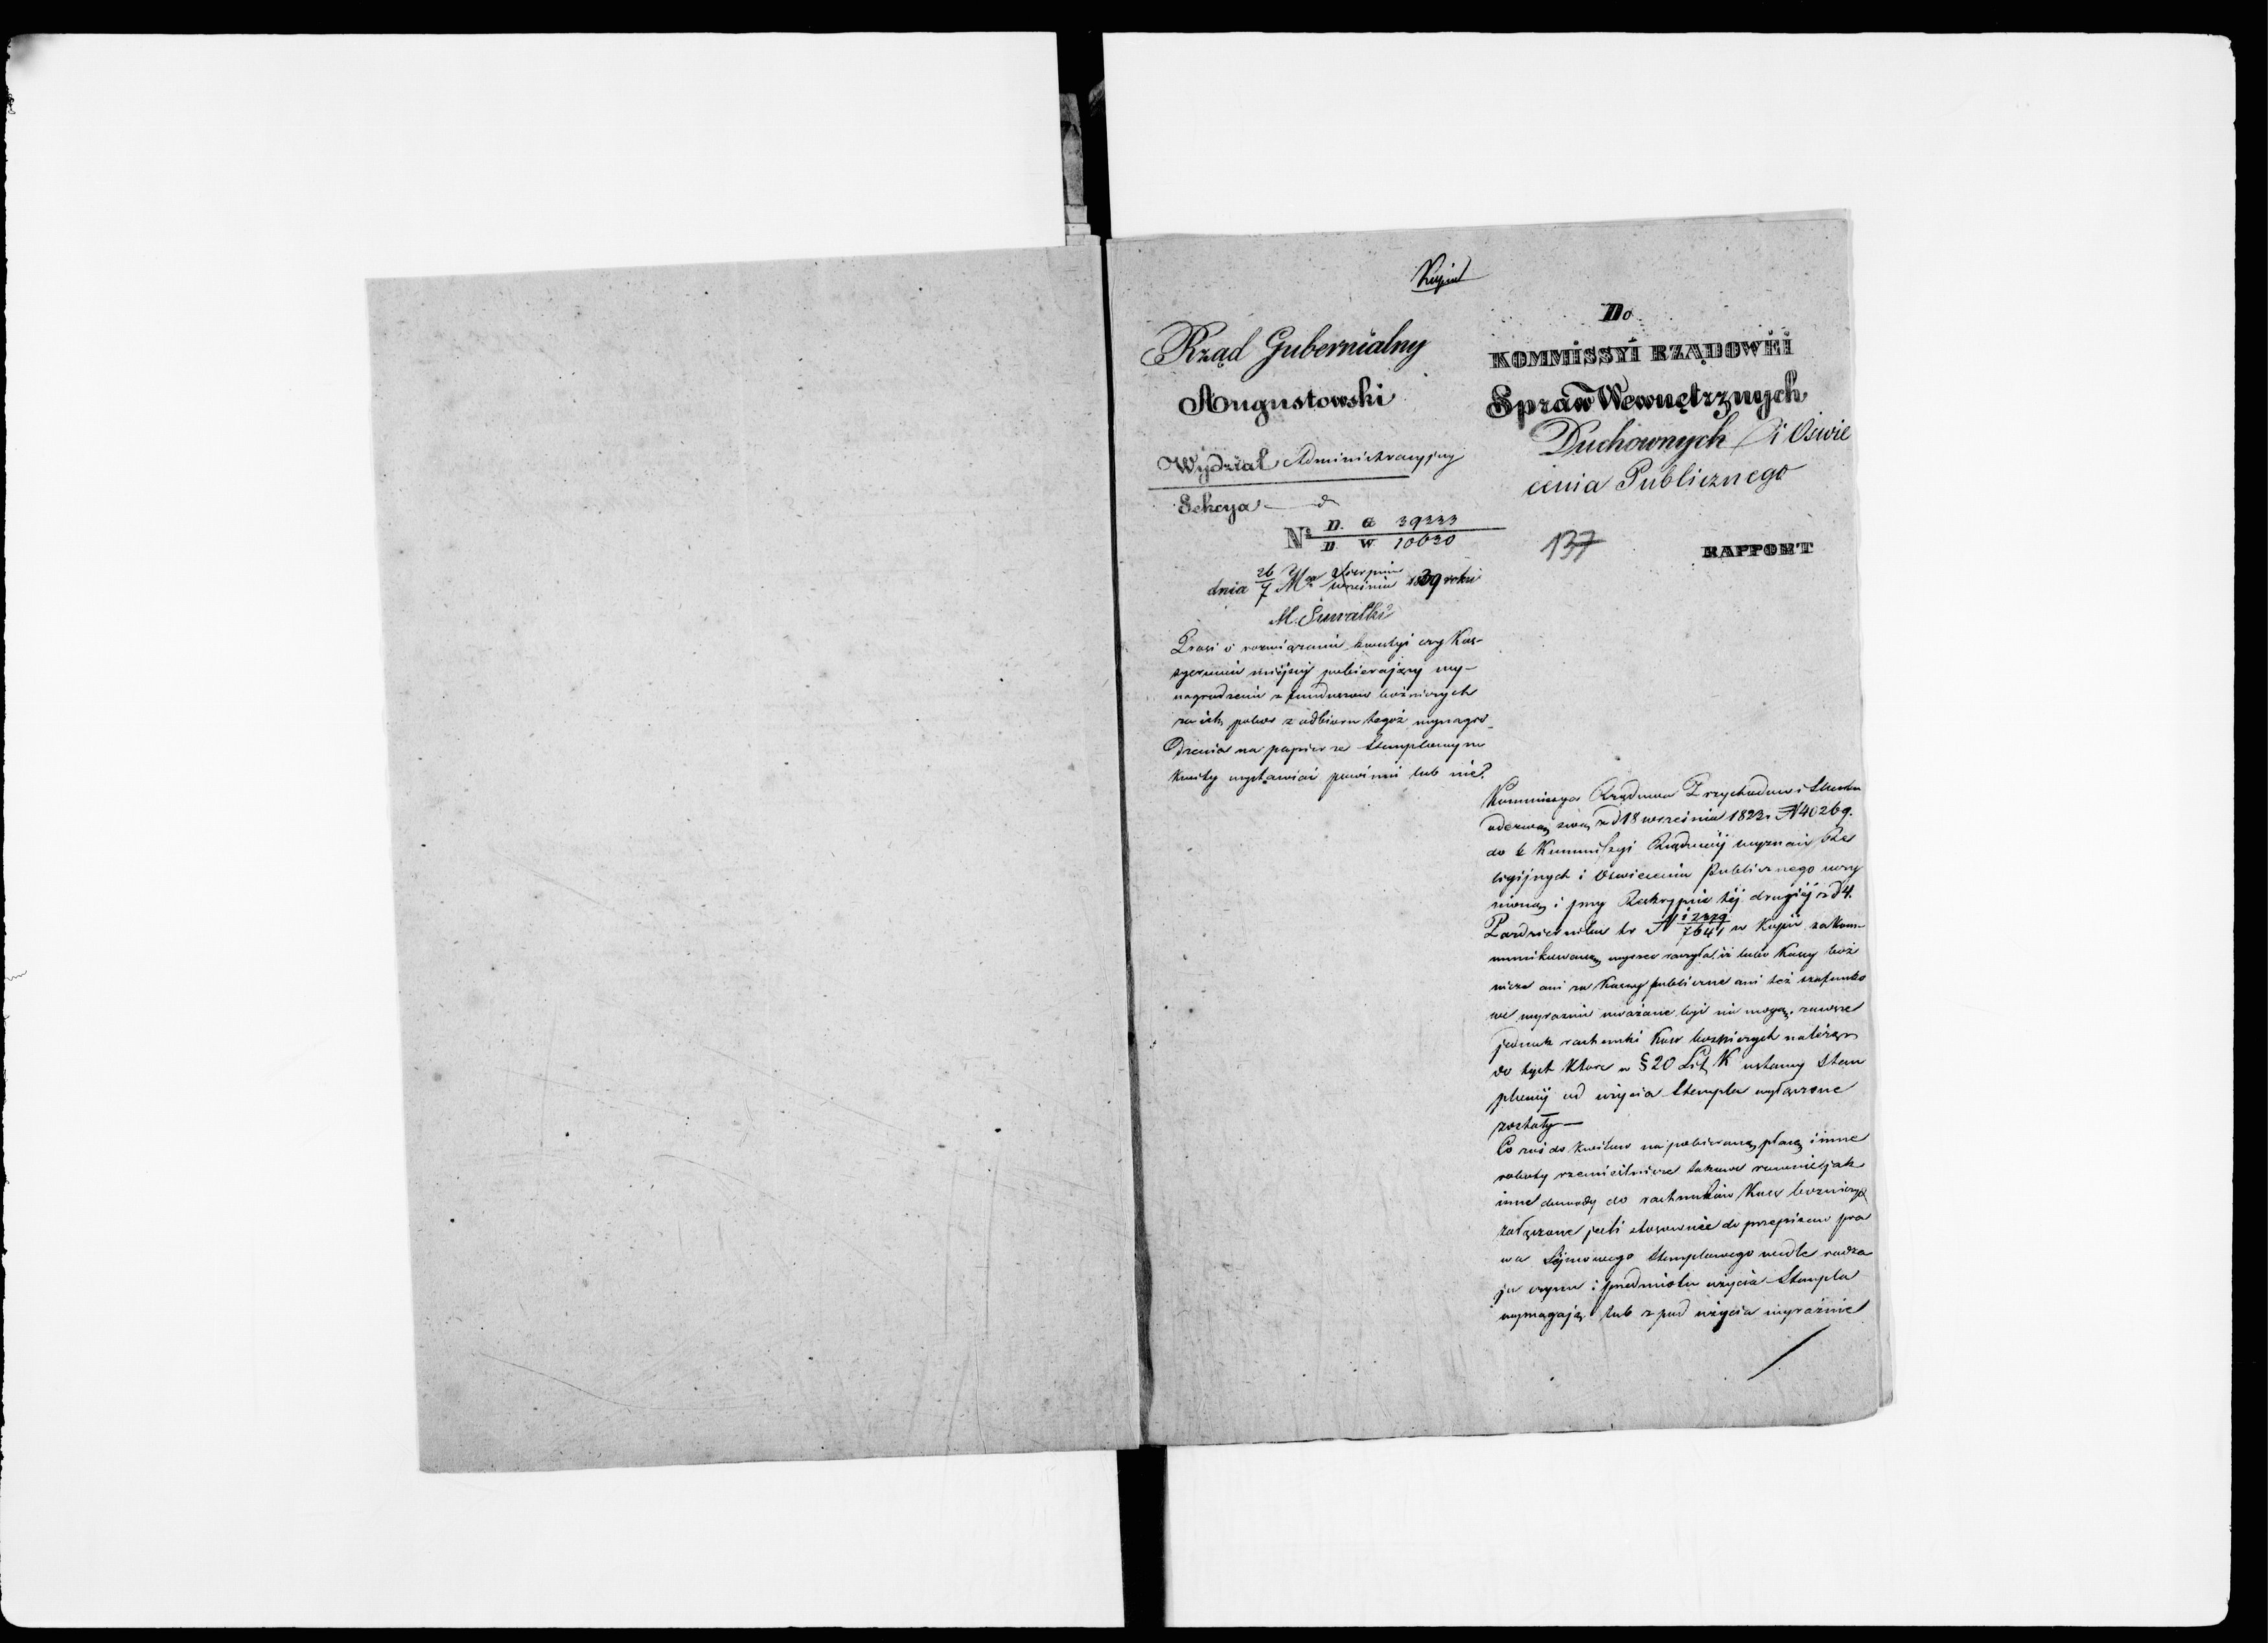 Kopia
Rząd Gubernialny
Augustowski
Wydział Administracyjny
Sekcya
N° D. G 39333
D. W 10630
dnia 26/7 Mca Sierpnia/września 1839 roku
M. Suwałki
Prosi o rozwiązanie kwestyi czy Kas-
syerowie miejscy pobierający wy-
nagrodzenie z funduszow bożniczych
za ich pobor z odbioru tegoż wynagro-
dzenia na papierze Stemplowym
kwity wystawiać powinni lub nie?
Do
KOMMISSYI RZĄDOWÉI
Spraw Wewnętrznych
Duchownych i Oświe
cenia Publicznego
137
RAPPORT
Kommissya Rządowa Przychodow i Skarbu
odezwą swą z d 18 września 1823 r N 40269.
do b Kommissyi Rządowéj wyznań Re
ligijnych i Oswiecenia Publicznego uczy
nioną i przy Reskrypcie téj drugiéj z d 4.
Pazdziernika tr N 12379/7641 w Kopii zakom-
munikowaną wyrzec raczyła, iż lubo Kassy boż
nicze ani za Kassy publiczne ani też szafunko
we wyraznie uważane być nie mogą, zawsze
jednak rachunki Kass boznicznych należą
do tych ktore w § 20 Lit. K ustawy Stem
plowéj od użycia Stempla wyłączone
zostały —
Co zaś do kwitow na pobieraną płacę i inne
roboty rzemieślnicze takowe rownie jak
inne dowody do rachunków Kass bozniczych
załączone jeśli stosownie do przepisow pra
wa Séjmowego Stemplowego wedle rodza
ju czynu i przedmiotu użycia Stempla
wymagają lub z pod użycia wyraźnie